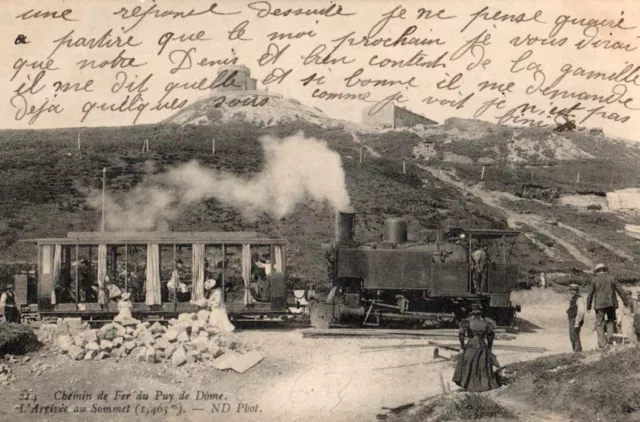 une réponse Dessude je ne pense guairé
& partire que le moi prochain je vous dirai
que notre Denis et bien content de la gamille
il me dit quelle et si bonne il me demande
déjà quelques sois comme je voit je n'est pas
214 Chemin de Fer du Puy de Dôme.
L'Arrivée au Sommet (1,465 m). — ND Phot.